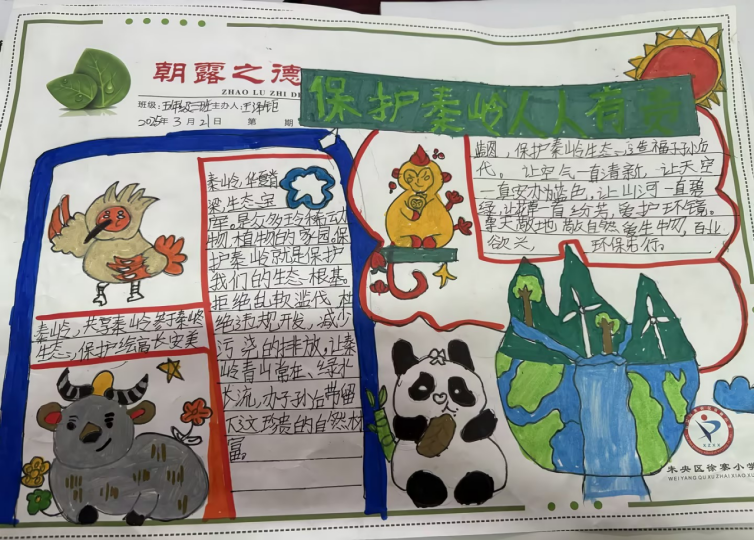 朝露之德
ZHAO LU ZHI DE
班级: 主办人
2025年3月21日 第 期
保护秦岭人人有责
秦岭,华夏脊
梁,生态宝
库。是众多珍稀动
物,植物的家园。保
护秦岭就是保护
我们的生态根基。
拒绝乱砍滥伐,杜
绝违规开发,减少
污浇的排放,让秦
岭青山常在、绿水
长流,为子孙后带留
下这珍贵的自然财
富。
秦岭,共享秦岭
生态,保护 长安美
,保护秦岭生态,造福子孙后
代。让空气一直清新,让天空
一直 蓝色,让山河一直碧
绿,让 一直纷芳,爱护环镜。
自然 生物,百业
欲兴, 环保市行。
未央区徐寨小学
WEI YANG QU XU ZHAI XIAO XU